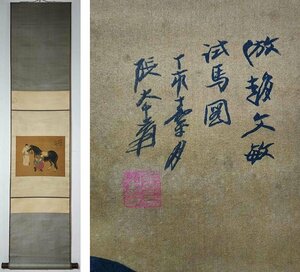 倣趙文敏
試馬圖
丁亥嘉平月
張大千爰